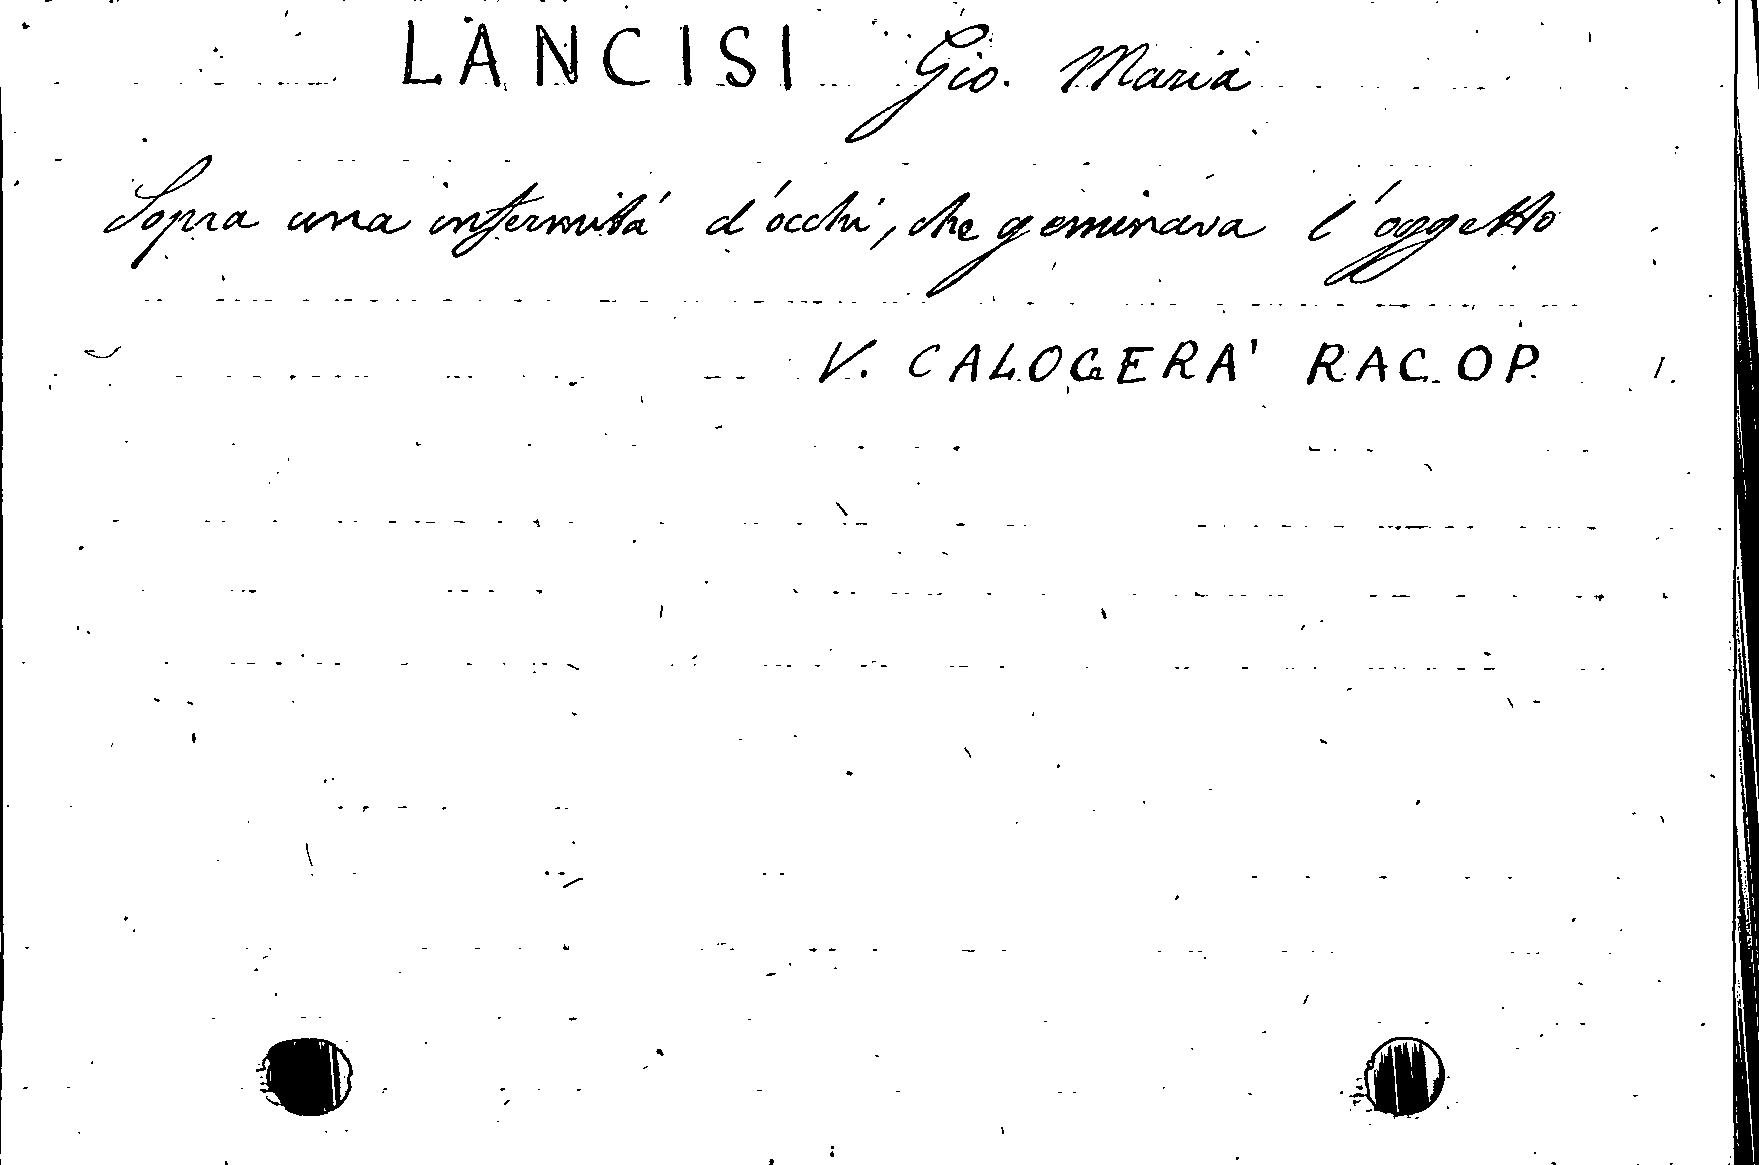 LANCISI Gio. Maria
Sopra una infermitá d'occhi, che geminava l'oggetto
V. CALOGERA' RAC. OP.